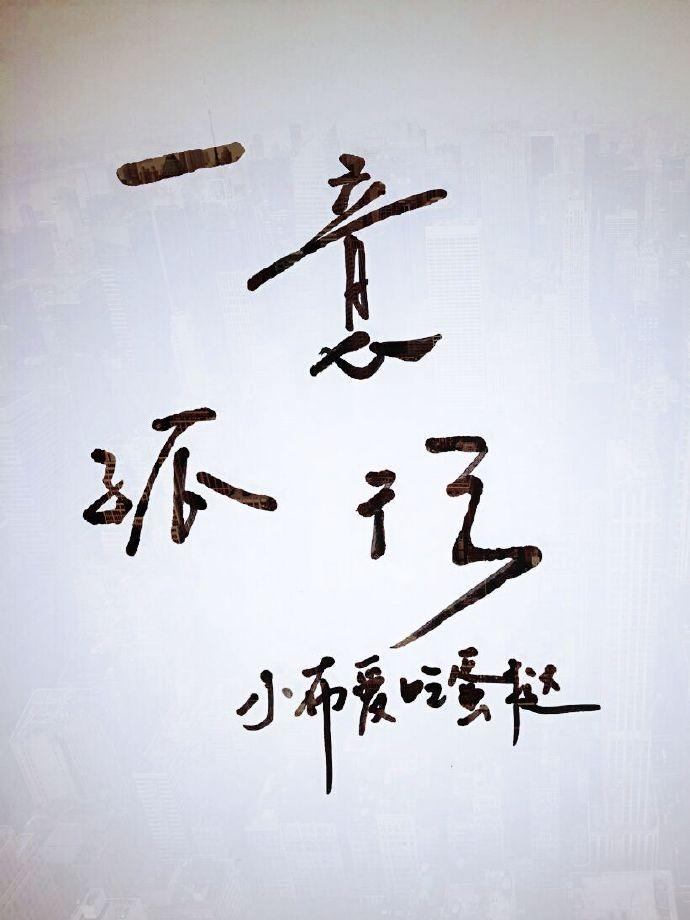 一意
孤行
小布爱吃蛋挞